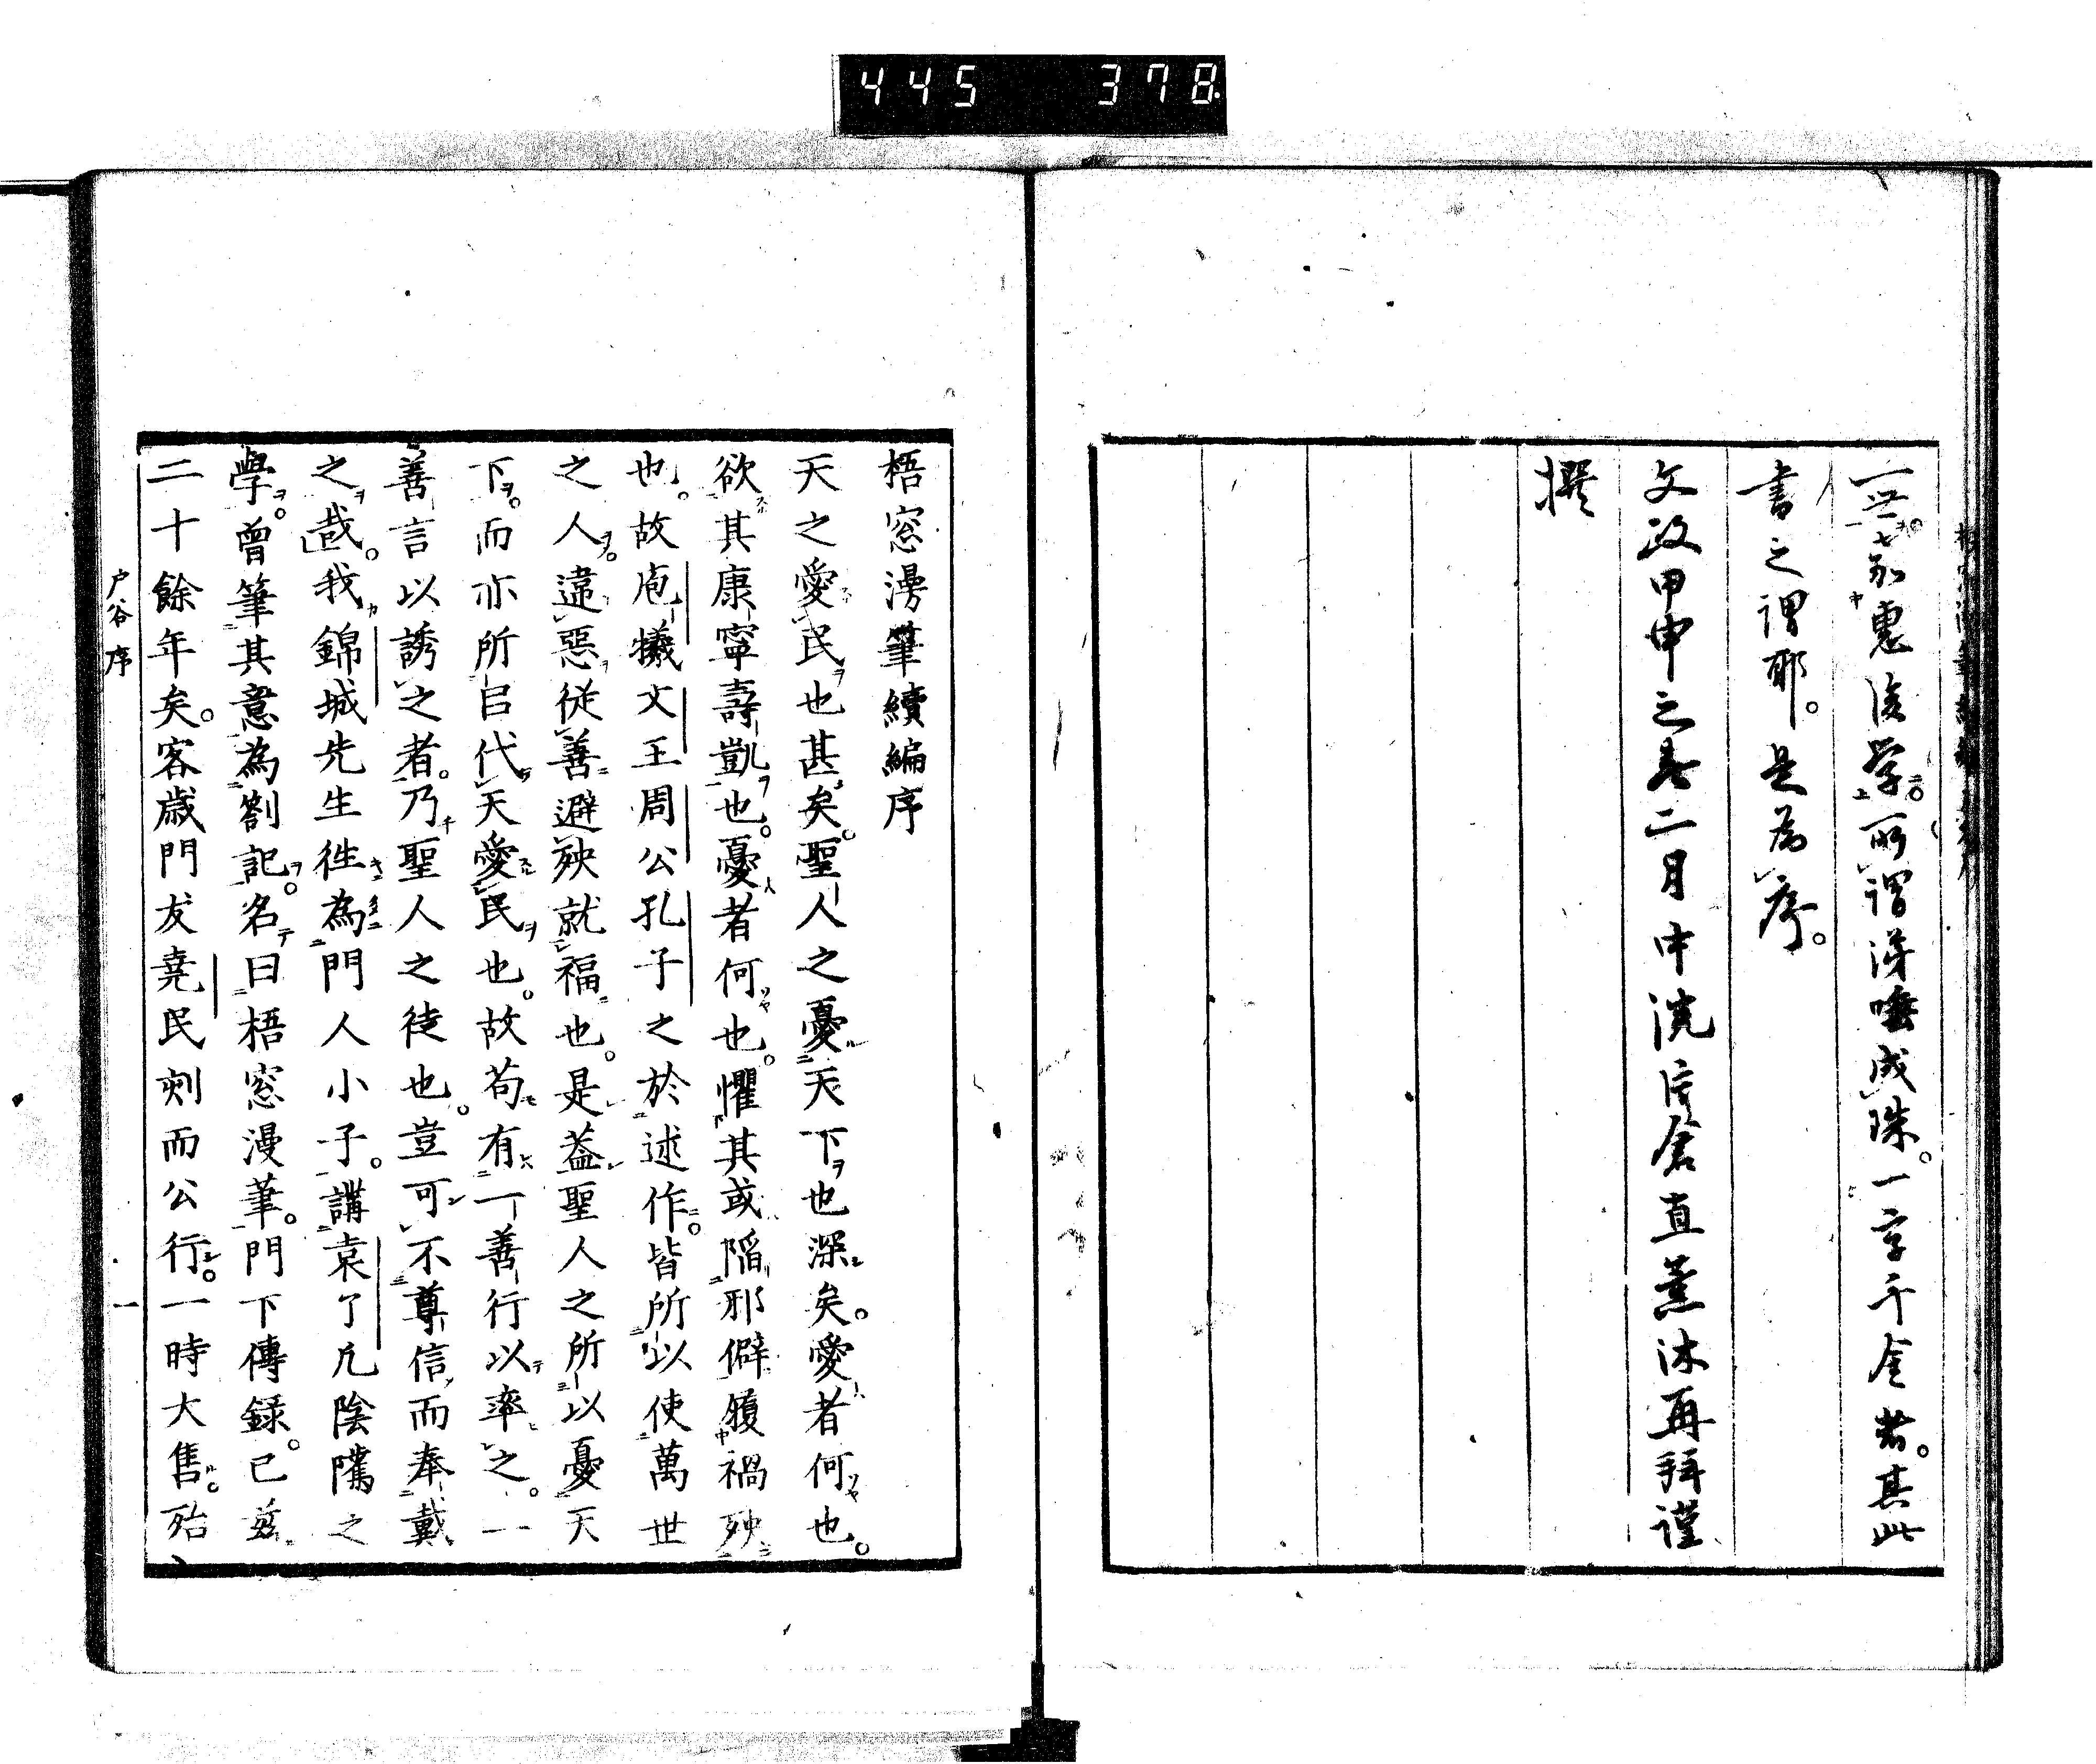 445 378
一世。
惠後学。所謂涕唾成珠。一字千金者。其此
書之謂耶。是為序。
文政甲申之春二月中浣片倉直薫沐再拜謹
撰
梧窓漫筆續編序
天之愛民也甚矣。聖人之憂天下也深矣。愛者何也。
欲其康寧壽凱也。憂者何也。懼其或陷邪僻履禍殃
也。故庖犧文王周公孔子之於述作。皆所以使萬世
之人。違惡從善避殃就福也。是蓋聖人之所以憂天
下。而亦所㠯代天愛民也。故苟有一善行以率之。一
善言以誘之者。乃聖人之徒也。豈可不尊信而奉戴
之哉。我錦城先生徃為門人小子。講袁了凡陰隲之
學。曾筆其意為劄記。名曰梧窓漫筆。門下傳録。已茲
二十餘年矣。客歳門友堯民刻而公行。一時大售。殆
戸谷序
一